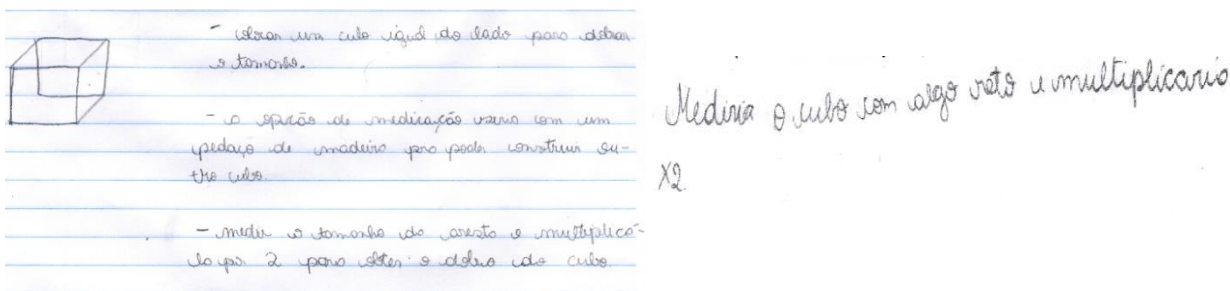 - colocar um cubo igual do lado para dobrar
o tamanho.
- a opção de medicação seria com um
pedaço de madeira pra poder construir ou-
tro cubo.
- medir o tamanho da aresta e multiplicá-
la por 2 para obter o dobro do cubo.
Mediria o cubo com algo reto e multiplicaria
X2.